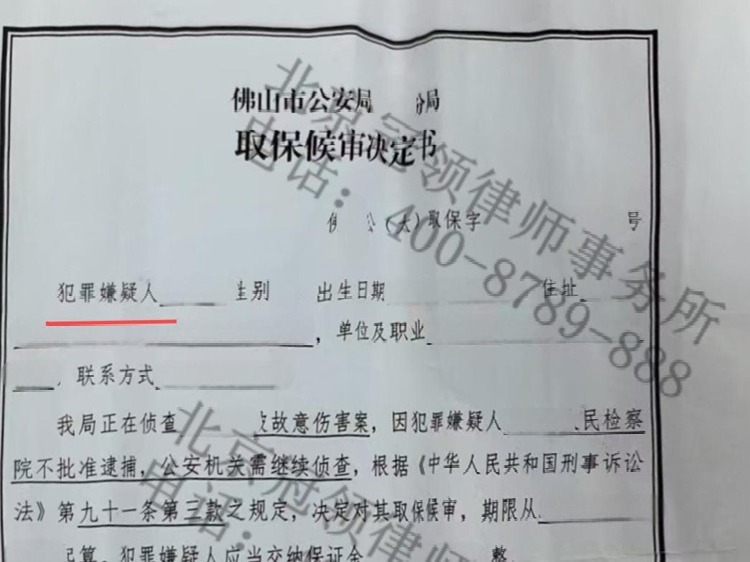 佛山市公安局 分局
取保候审决定书
公(大)取保字 号
犯罪嫌疑人 性别 出生日期 住址
,单位及职业
,联系方式
我局正在侦查 故意伤害案,因犯罪嫌疑人 民检察
院不批准逮捕,公安机关需继续侦查,根据《中华人民共和国刑事诉讼
法》第九十一条第三款之规定,决定对其取保候审,期限从
起算。犯罪嫌疑人应当交纳保证金 整
北京冠领律师事务所
电话:400-8789-888
北京冠领律师
电话: